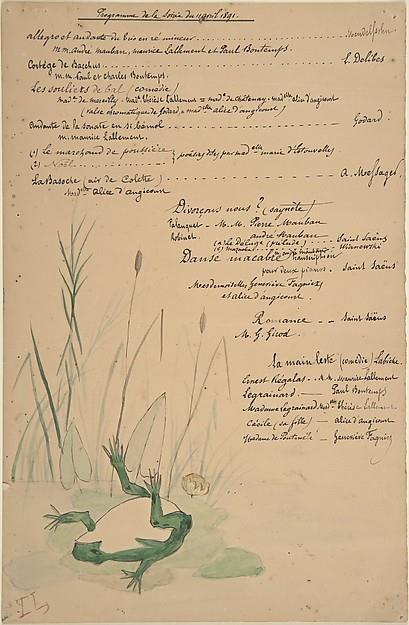 Programme de la Soirée du 11 avril 1891.
allegro et andante du trio en ré mineur Mendelssohn
m.m. André Mauban, Maurice Lallement et Paul Bontemps.
Cortège de Bacchus L. Delibes
m.m. Paul et Charles Bontemps.
Les souliers de bal (comédie)
mad. de - mad. thérèse Lallement = mad. de Chatenay - mad elle alice d'angicourt
(valse chromatique de Godard = mad elle alice d'angicourt)
andante de la sonate en si bémol Godard
m. maurice Lallement.
(1) Le marchand de poussière
(2) Noël poésies dites par mad elle marie d'Estouvelly
La Basoche (air de Colette) A. Messager
mad elle alice d'angicourt
Divorçons nous? (saynète)
- M. M. Pierre Mauban
andré Mauban
(a) Le Déluge (prélude) Saint Saëns
(b)
Danse macabre transcription
pour deux pianos. Saint Saëns
Mesdemoiselles Geneviève
et alice d'angicourt.
Romance Saint Saëns
M. G. Girod.
La main leste (comédie) Labiche.
Ernest Régalas M. Maurice Lallement
Legrainard Paul Bontemps
Madame Legrainard Mad elle thérèse Lallement
Cécile (sa fille) alice d'angicourt
Madame de Geneviève